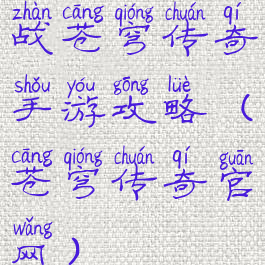 zhàn cāng qióng chuán qí
战苍穹传奇
shǒu yóu gōng lüè
手游攻略（
cāng qióng chuán qí guān
苍穹传奇官
wǎng
网）